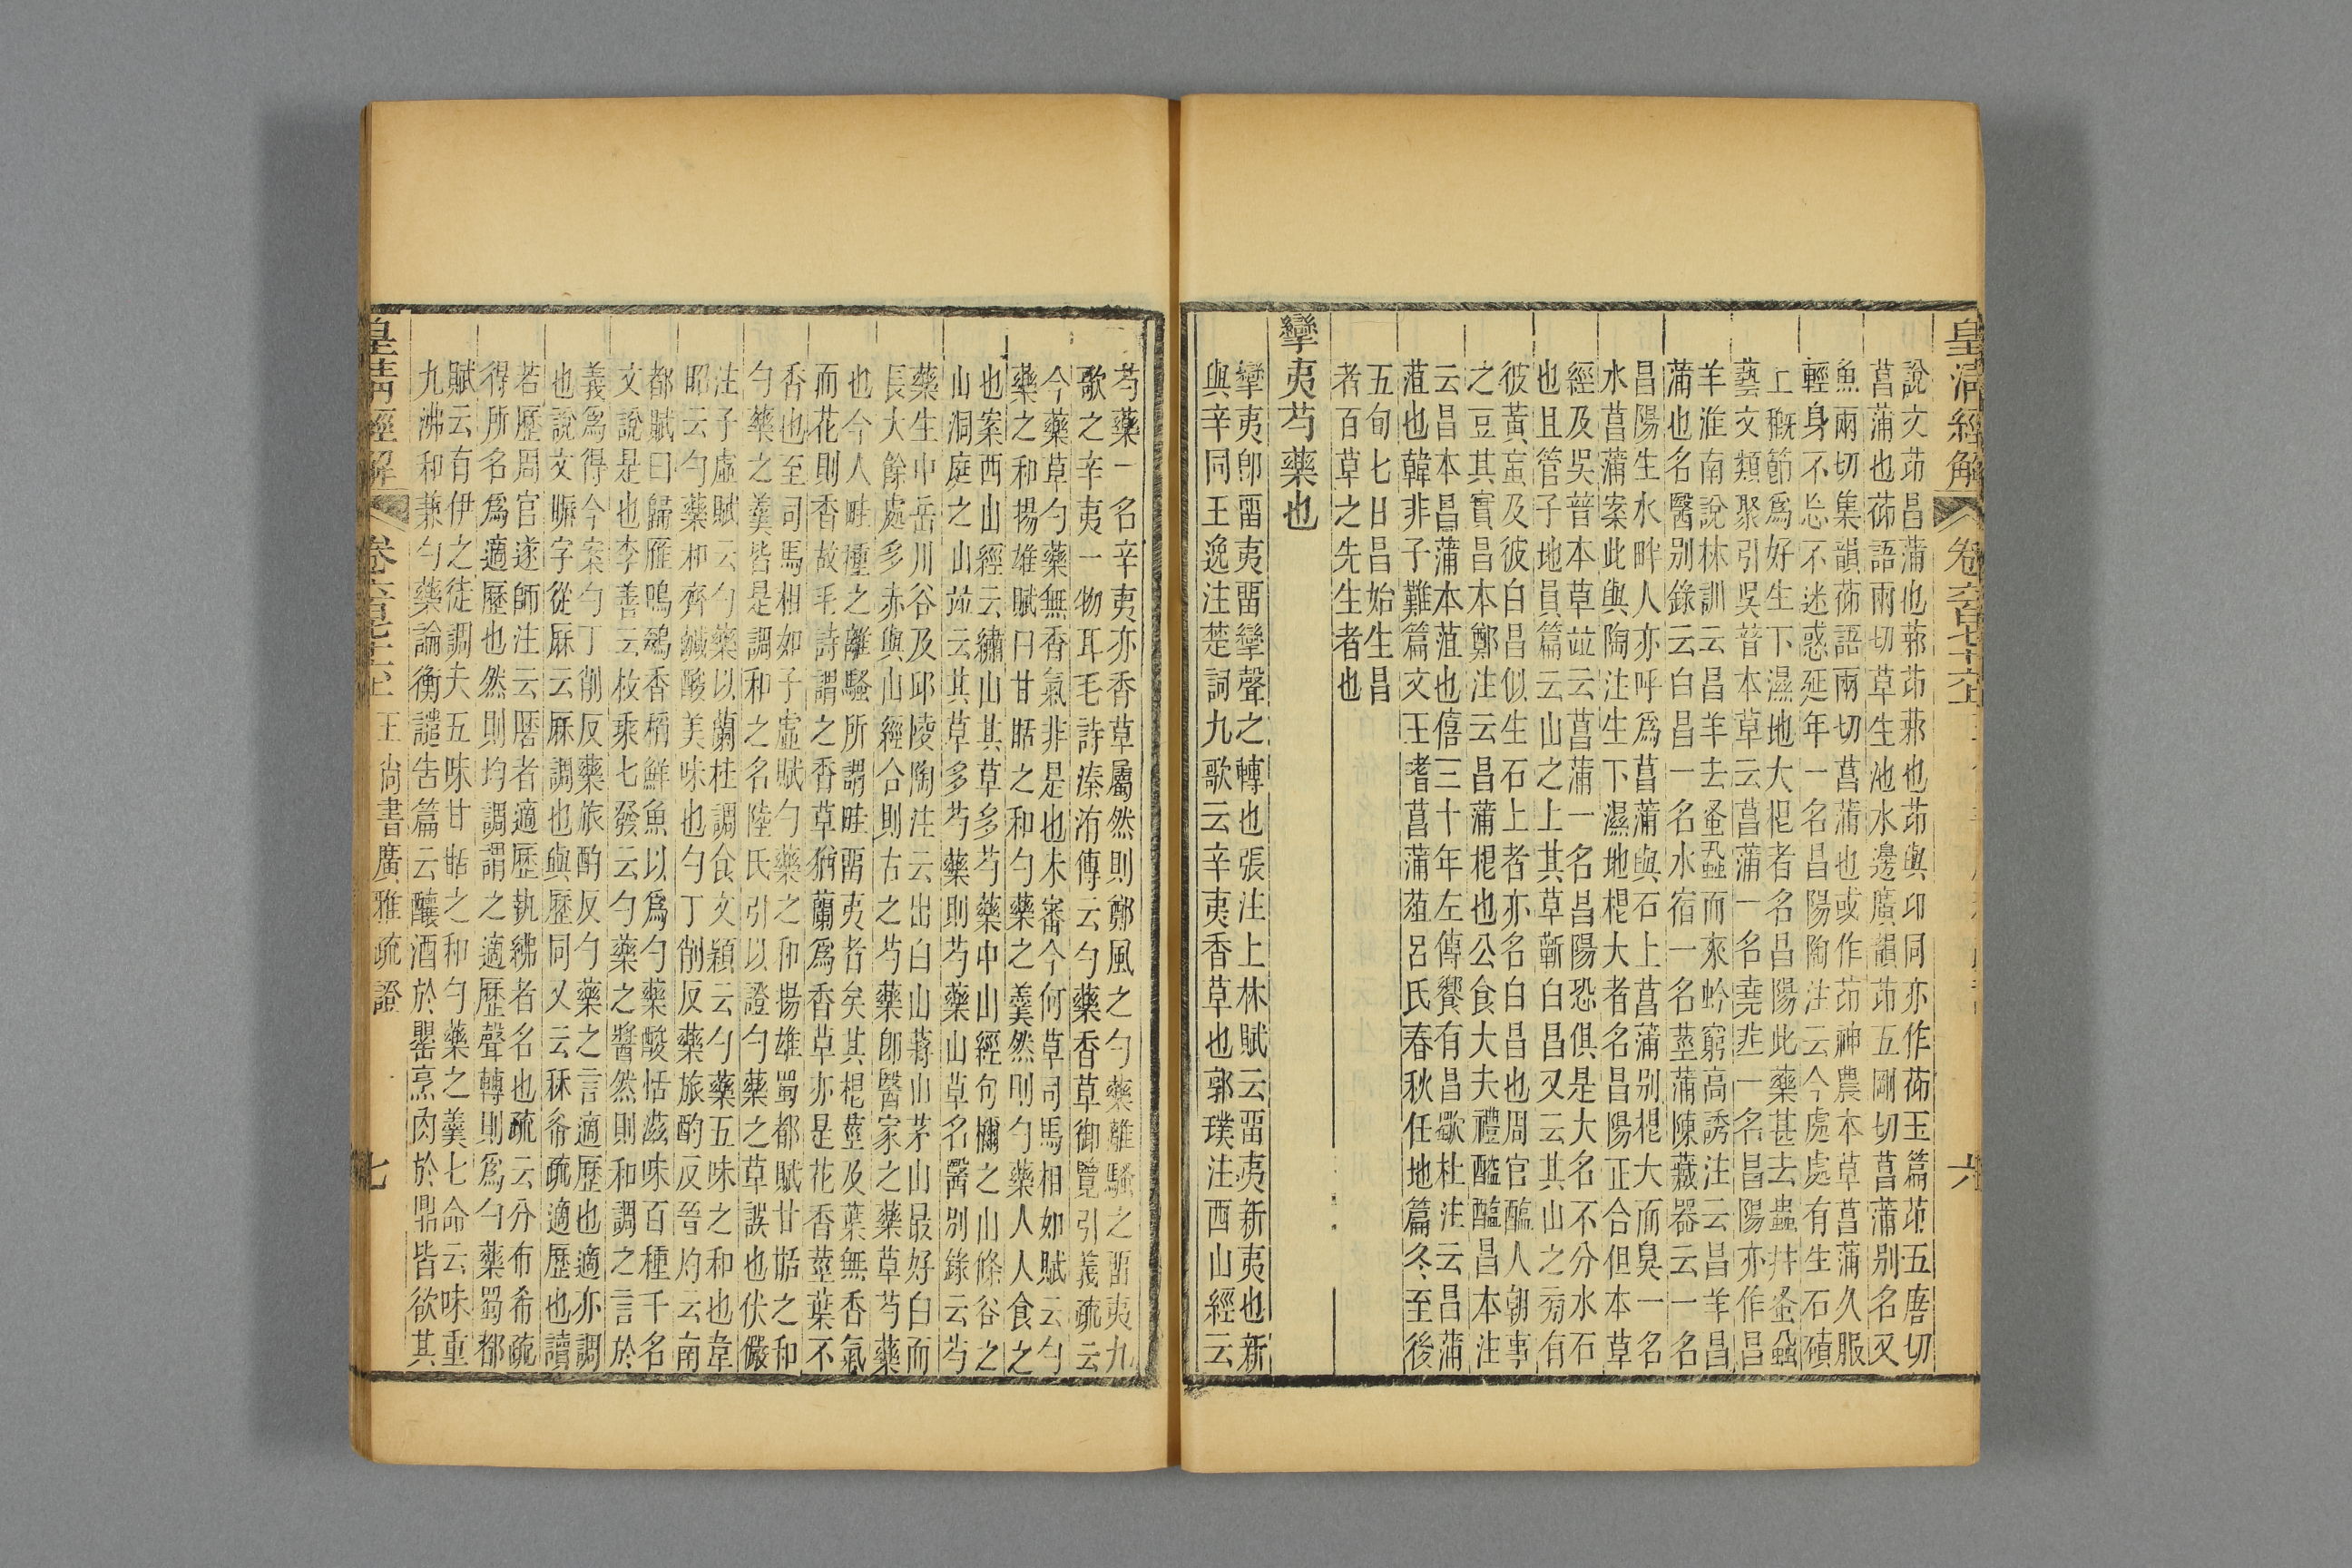 皇清經解
卷六百七十六上
六
說文茚昌蒲也䓲茚䓲也茚與卬同亦作䒢玉篇茚五唐切
菖蒲也䒢語兩切草生池水邊廣韻茚五剛切菖蒲別名又
魚兩切集韻䒢語兩切菖蒲也或作茚神農本草菖蒲久服
輕身不忘不迷惑延年一名昌陽陶注云今處處有生石磧
上穊節爲好生下濕地大根者名昌陽此藥甚去蟲幷蚤蝨
藝文類聚引吳普本草云菖蒲一名堯韭一名昌陽亦作昌
羊淮南說林訓云昌羊去蚤蝨而來蚙窮高誘注云昌羊昌
蒲也名醫別錄云白昌一名水宿一名莖蒲陳藏器云一名
昌陽生水畔人亦呼爲菖蒲與石上菖蒲別根大而臭一名
水菖蒲案此與陶注生下濕地根大者名昌陽正合但本草
經及吳普本草竝云菖蒲一名昌陽恐俱是大名不分水石
也且管子地員篇云山之上其草蘄白昌又云其山之旁有
彼黃䖟及彼白昌似生石上者亦名白昌也周官醢人朝事
之豆其實昌本鄭注云昌蒲根也公食大夫禮醓醢昌本注
云昌本昌蒲本菹也僖三十年左傳饗有昌歜杜注云昌蒲
菹也韓非子難篇文王嗜菖蒲菹呂氏春秋任地篇冬至後
五旬七日昌始生昌
者百草之先生者也
攣夷芍藥也
攣夷卽畱夷畱攣聲之轉也張注上林賦云畱夷新夷也新
與辛同王逸注楚詞九歌云辛夷香草也郭璞注西山經云
芍藥一名辛夷亦香草屬然則鄭風之勺藥離騷之畱夷九
歌之辛夷一物耳毛詩溱洧傳云勺藥香草御覽引義疏云
今藥草勺藥無香氣非是也未審今何草司馬相如賦云勺
藥之和揚雄賦曰甘甛之和勺藥之羹然則勺藥人人食之
也案西山經云繡山其草多芍藥中山經句檷之山條谷之
山洞庭之山竝云其草多芍藥則芍藥山草名醫別錄云芍
藥生中岳川谷及邱陵陶注云出白山蔣山茅山最好白而
長大餘處多亦與山經合則古之芍藥卽醫家之藥草芍藥
也今人畦種之離騷所謂畦畱夷者矣其根莖及葉無香氣
而花則香故毛詩謂之香草猶蘭爲香草亦是花香莖葉不
香也至司馬相如子虛賦勺藥之和揚雄蜀都賦甘甛之和
勺藥之羹皆是調和之名陸氏引以證勺藥之草誤也伏儼
注子虛賦云勺藥以蘭桂調食文穎云勺藥五味之和也韋
昭云勺藥和齊鹹酸美味也勺丁削反藥旅酌反晉灼云南
都賦曰歸雁鳴鵽香稻鮮魚以爲勺藥酸恬滋味百種千名
文說是也李善云枚乘七發云勺藥之醬然則和調之言於
義爲得今案勺丁削反藥旅酌反勺藥之言適歷也適亦調
也說文𪎭字從厤云厤調也與歷同又云秝希疏適歷也讀
若歷周官遂師注云磿者適歷執紼者名也疏云分布希疏
得所名爲適歷也然則均調謂之適歷聲轉則爲勺藥蜀都
賦云有伊之徒調夫五味甘甛之和勺藥之羹七命云味重
九沸和兼勺藥論衡譴吿篇云釀酒於罌烹肉於鼎皆欲其
皇清經解
卷六百七十六上
王尚書廣雅疏證
七